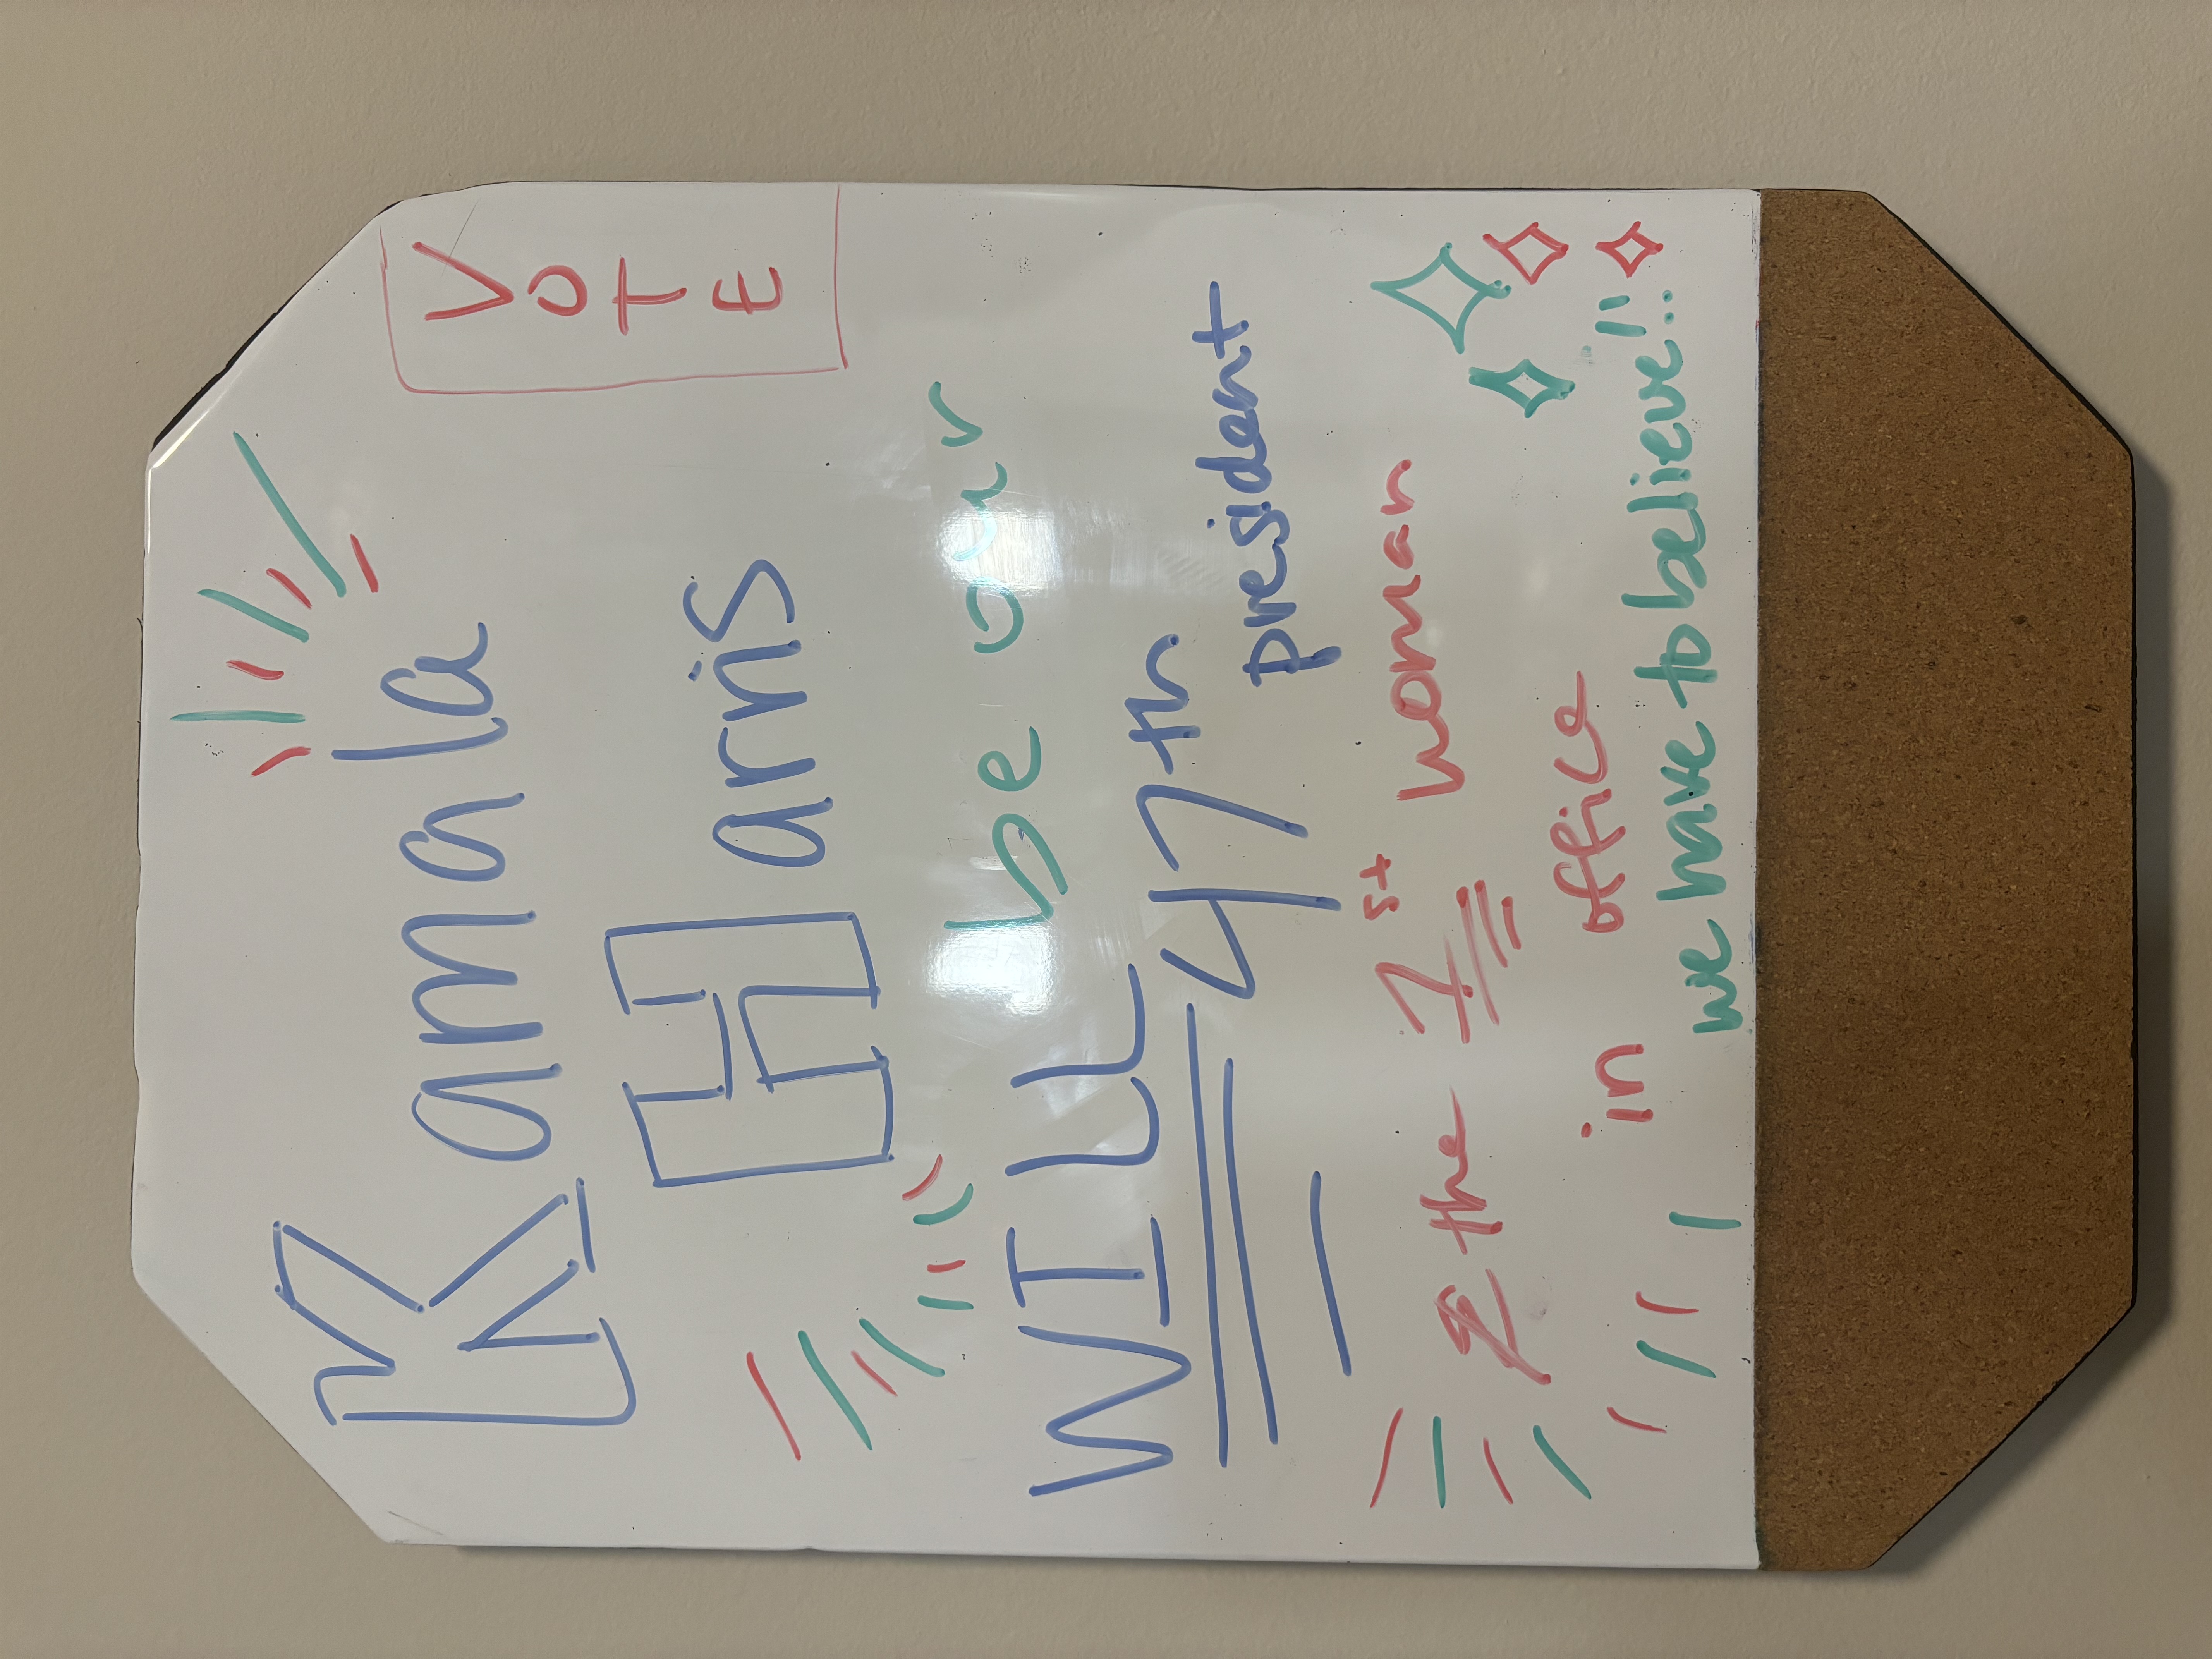 Kamala
VOTE
Haris
WILL be our
47th president
& the 1st woman
in office
we have to believe!!